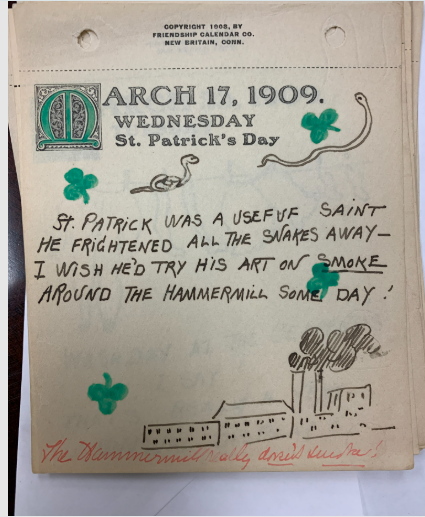 COPYRIGHT 1908, BY
FRIENDSHIP CALENDAR CO.
NEW BRITAIN, CONN.
MARCH 17, 1909.
WEDNESDAY
St. Patrick's Day
St. PATRICK WAS A USEFUF SAINT
HE FRIGHTENED ALL THE SNAKES AWAY—
I WISH HE'D TRY HIS ART ON SMOKE
AROUND THE HAMMERMILL SOME DAY!
The Hammermill really does smoke!